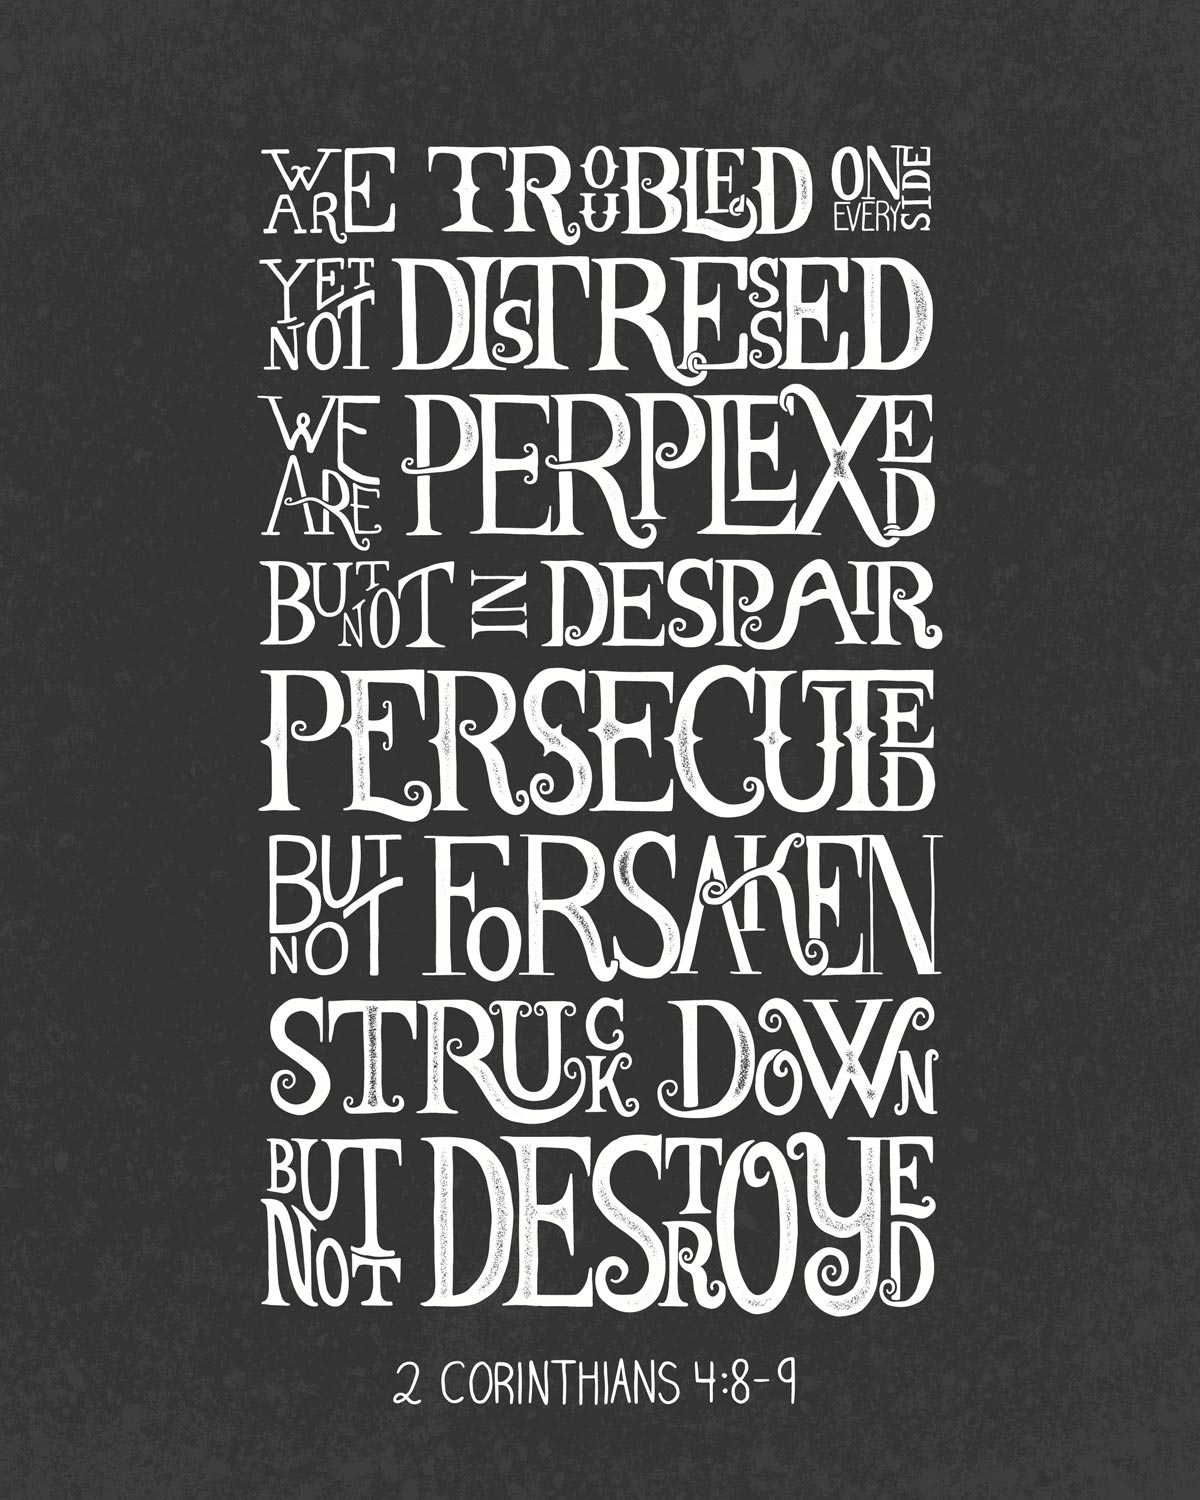 WE ARE TROUBLED ON EVERY SIDE
YET NOT DISTRESSED
WE ARE PERPLEXED
BUT NOT IN DESPAIR
PERSECUTED
BUT NOT FORSAKEN
STRUCK DOWN
BUT NOT DESTROYED
2 CORINTHIANS 4:8-9